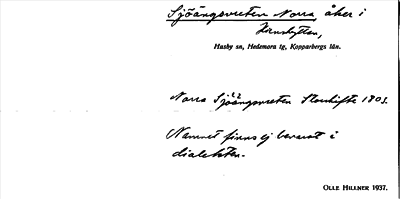 Sjöängsvreten Norra, åker i
Husby sn, Hedemora tg, Kopparbergs län.
Norra Sjöängsvreten Storskifte 1803.
Namnet finns ej bevarat i
dialekten.
OLLE HILLNER 1937.